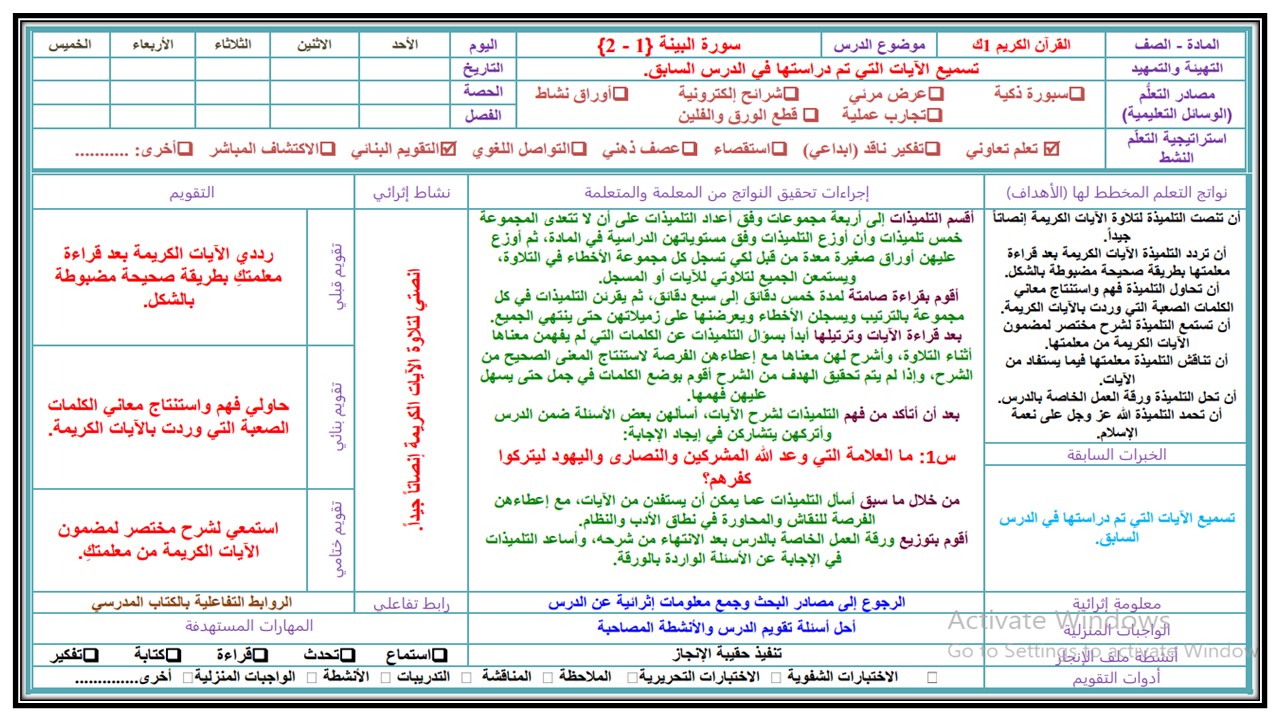 المادة - الصف
القرآن الكريم 1ك
موضوع الدرس
سورة البينة {1 - 2}
اليوم
الأحد
الاثنين
الثلاثاء
الأربعاء
الخميس
التهيئة والتمهيد
تسميع الآيات التي تم دراستها في الدرس السابق.
التاريخ
مصادر التعلَّم
(الوسائل التعليمية)
❑سبورة ذكية ❑عرض مرئي ❑شرائح إلكترونية ❑أوراق نشاط
❑تجارب عملية ❑ قطع الورق والفلين
الحصة
الفصل
استراتيجية التعلّم
النشط
☑ تعلم تعاوني ❑تفكير ناقد (ابداعي) ❑استقصاء ❑عصف ذهني ❑التواصل اللغوي ☑التقويم البنائي ❑الاكتشاف المباشر ❑أخرى: ...........
نواتج التعلم المخطط لها (الأهداف)
إجراءات تحقيق النواتج من المعلمة والمتعلمة
نشاط إثرائي
التقويم
أن تنصت التلميذة لتلاوة الآيات الكريمة إنصاتاً
جيداً.
أن تردد التلميذة الآيات الكريمة بعد قراءة
معلمتها بطريقة صحيحة مضبوطة بالشكل.
أن تحاول التلميذة فهم واستنتاج معاني
الكلمات الصعبة التي وردت بالآيات الكريمة.
أن تستمع التلميذة لشرح مختصر لمضمون
الآيات الكريمة من معلمتها.
أن تناقش التلميذة معلمتها فيما يستفاد من
الآيات.
أن تحل التلميذة ورقة العمل الخاصة بالدرس.
أن تحمد التلميذة الله عز وجل على نعمة
الإسلام.
الخبرات السابقة
تسميع الآيات التي تم دراستها في الدرس
السابق.
أقسم التلميذات إلى أربعة مجموعات وفق أعداد التلميذات على أن لا تتعدى المجموعة
خمس تلميذات وأن أوزع التلميذات وفق مستوياتهن الدراسية في المادة، ثم أوزع
عليهن أوراق صغيرة معدة من قبل لكي تسجل كل مجموعة الأخطاء في التلاوة،
ويستمعن الجميع لتلاوتي للآيات أو المسجل.
أقوم بقراءة صامتة لمدة خمس دقائق إلى سبع دقائق، ثم يقرئن التلميذات في كل
مجموعة بالترتيب ويسجلن الأخطاء ويعرضنها على زميلاتهن حتى ينتهي الجميع.
بعد قراءة الآيات وترتيلها أبدأ بسؤال التلميذات عن الكلمات التي لم يفهمن معناها
أثناء التلاوة، وأشرح لهن معناها مع إعطاءهن الفرصة لاستنتاج المعنى الصحيح من
الشرح، وإذا لم يتم تحقيق الهدف من الشرح أقوم بوضع الكلمات في جمل حتى يسهل
عليهن فهمها.
بعد أن أتأكد من فهم التلميذات لشرح الآيات، أسألهن بعض الأسئلة ضمن الدرس
وأتركهن يتشاركن في إيجاد الإجابة:
س1: ما العلامة التي وعد الله المشركين والنصارى واليهود ليتركوا
كفرهم؟
من خلال ما سبق أسأل التلميذات عما يمكن أن يستفدن من الآيات، مع إعطاءهن
الفرصة للنقاش والمحاورة في نطاق الأدب والنظام.
أقوم بتوزيع ورقة العمل الخاصة بالدرس بعد الانتهاء من شرحه، وأساعد التلميذات
في الإجابة عن الأسئلة الواردة بالورقة.
انصتي لتلاوة الآيات الكريمة إنصاتاً جيداً.
تقويم قبلي
رددي الآيات الكريمة بعد قراءة
معلمتكِ بطريقة صحيحة مضبوطة
بالشكل.
تقويم بنائي
حاولي فهم واستنتاج معاني الكلمات
الصعبة التي وردت بالآيات الكريمة.
تقويم ختامي
استمعي لشرح مختصر لمضمون
الآيات الكريمة من معلمتكِ.
معلومة إثرائية
الرجوع إلى مصادر البحث وجمع معلومات إثرائية عن الدرس
رابط تفاعلي
الروابط التفاعلية بالكتاب المدرسي
الواجبات المنزلية
أحل أسئلة تقويم الدرس والأنشطة المصاحبة
المهارات المستهدفة
أنشطة ملف الإنجاز
تنفيذ حقيبة الإنجاز
❑استماع ❑تحدث ❑قراءة ❑كتابة ❑تفكير
أدوات التقويم
□ الاختبارات الشفوية □ الاختبارات التحريرية □ الملاحظة □ المناقشة □ التدريبات □ الأنشطة □ الواجبات المنزلية □ أخرى..............
Activate Windows
Go to Settings to activate Window